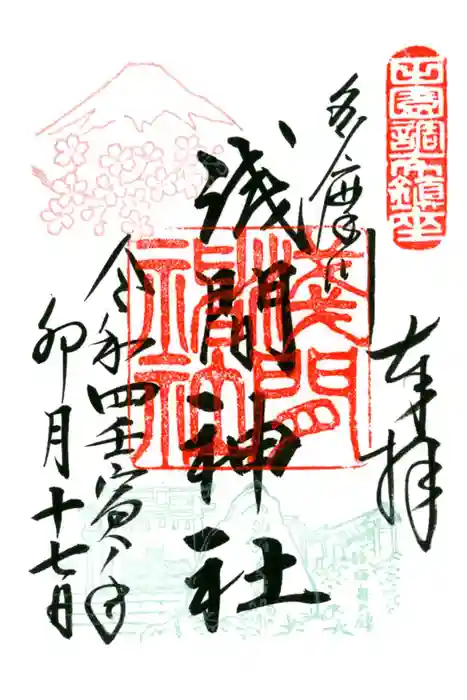 田園調布鎮座
奉拝
多摩川
浅間神社
淺間神社
令和四壬寅ノ年
卯月十七日